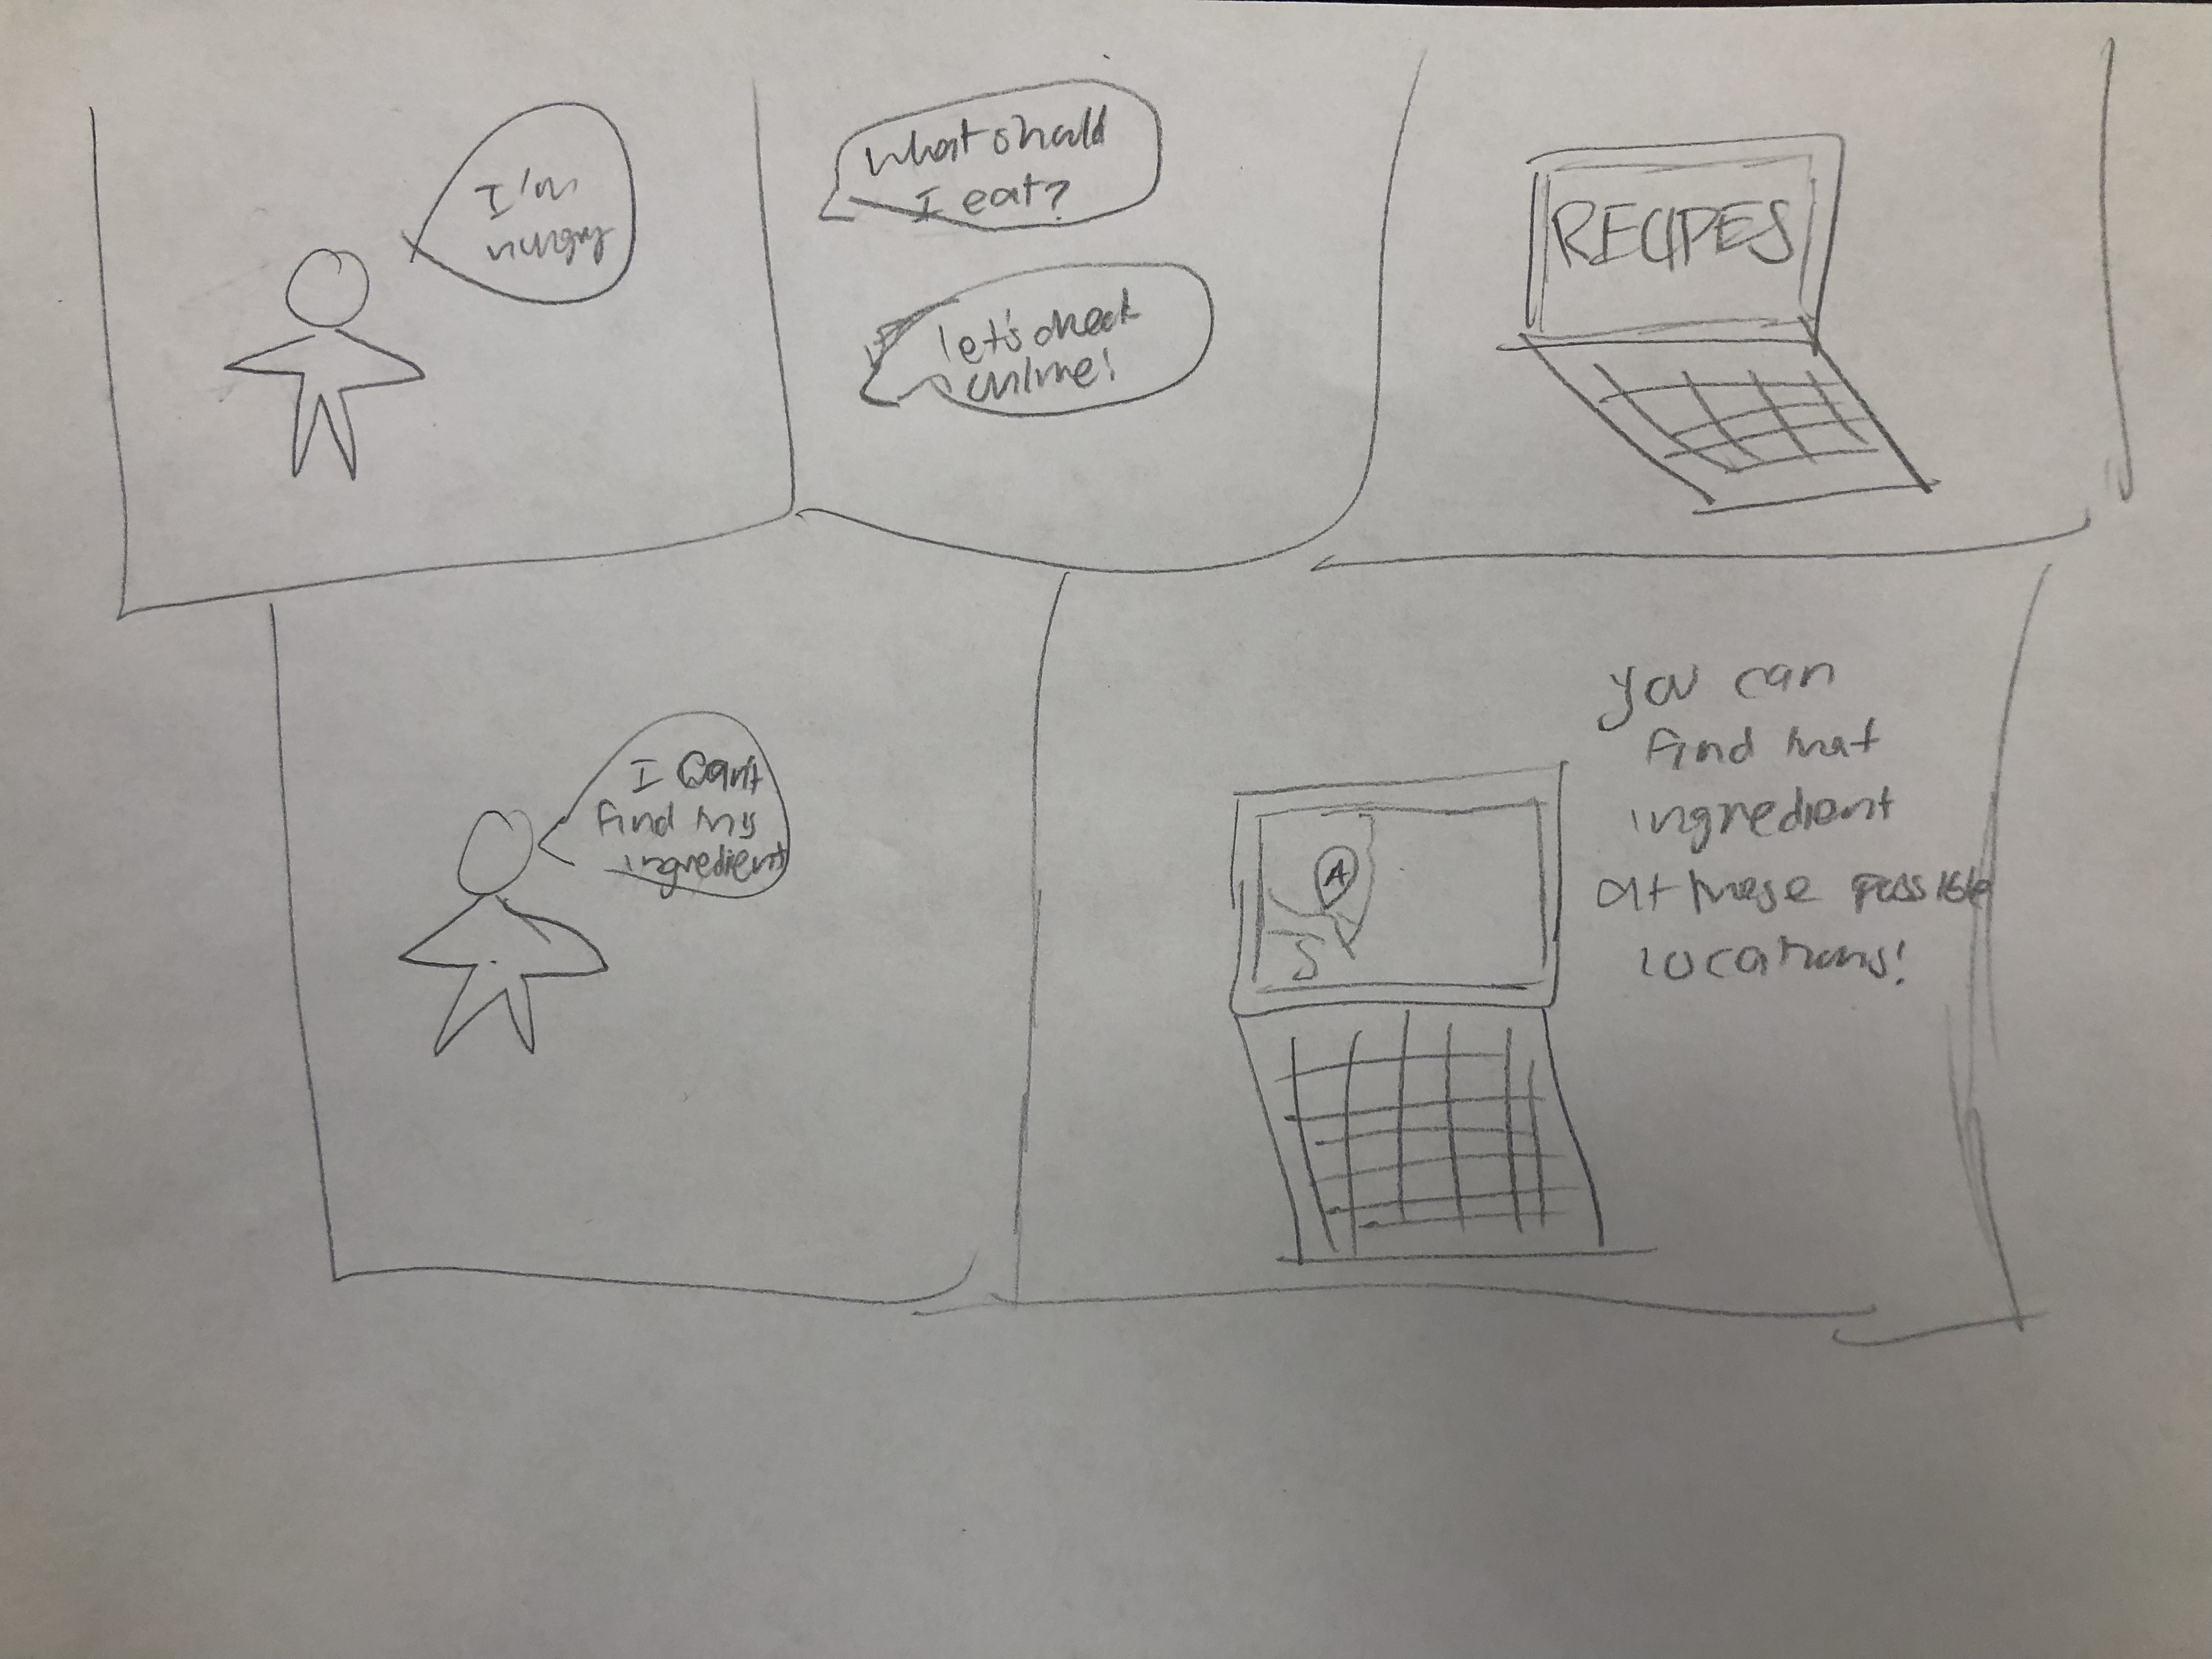 I'm
hungry
What should
I eat?
let's check
online!
RECIPES
I Can't
find this
ingredient
you can
find that
ingredient
at these possible
locations!
A